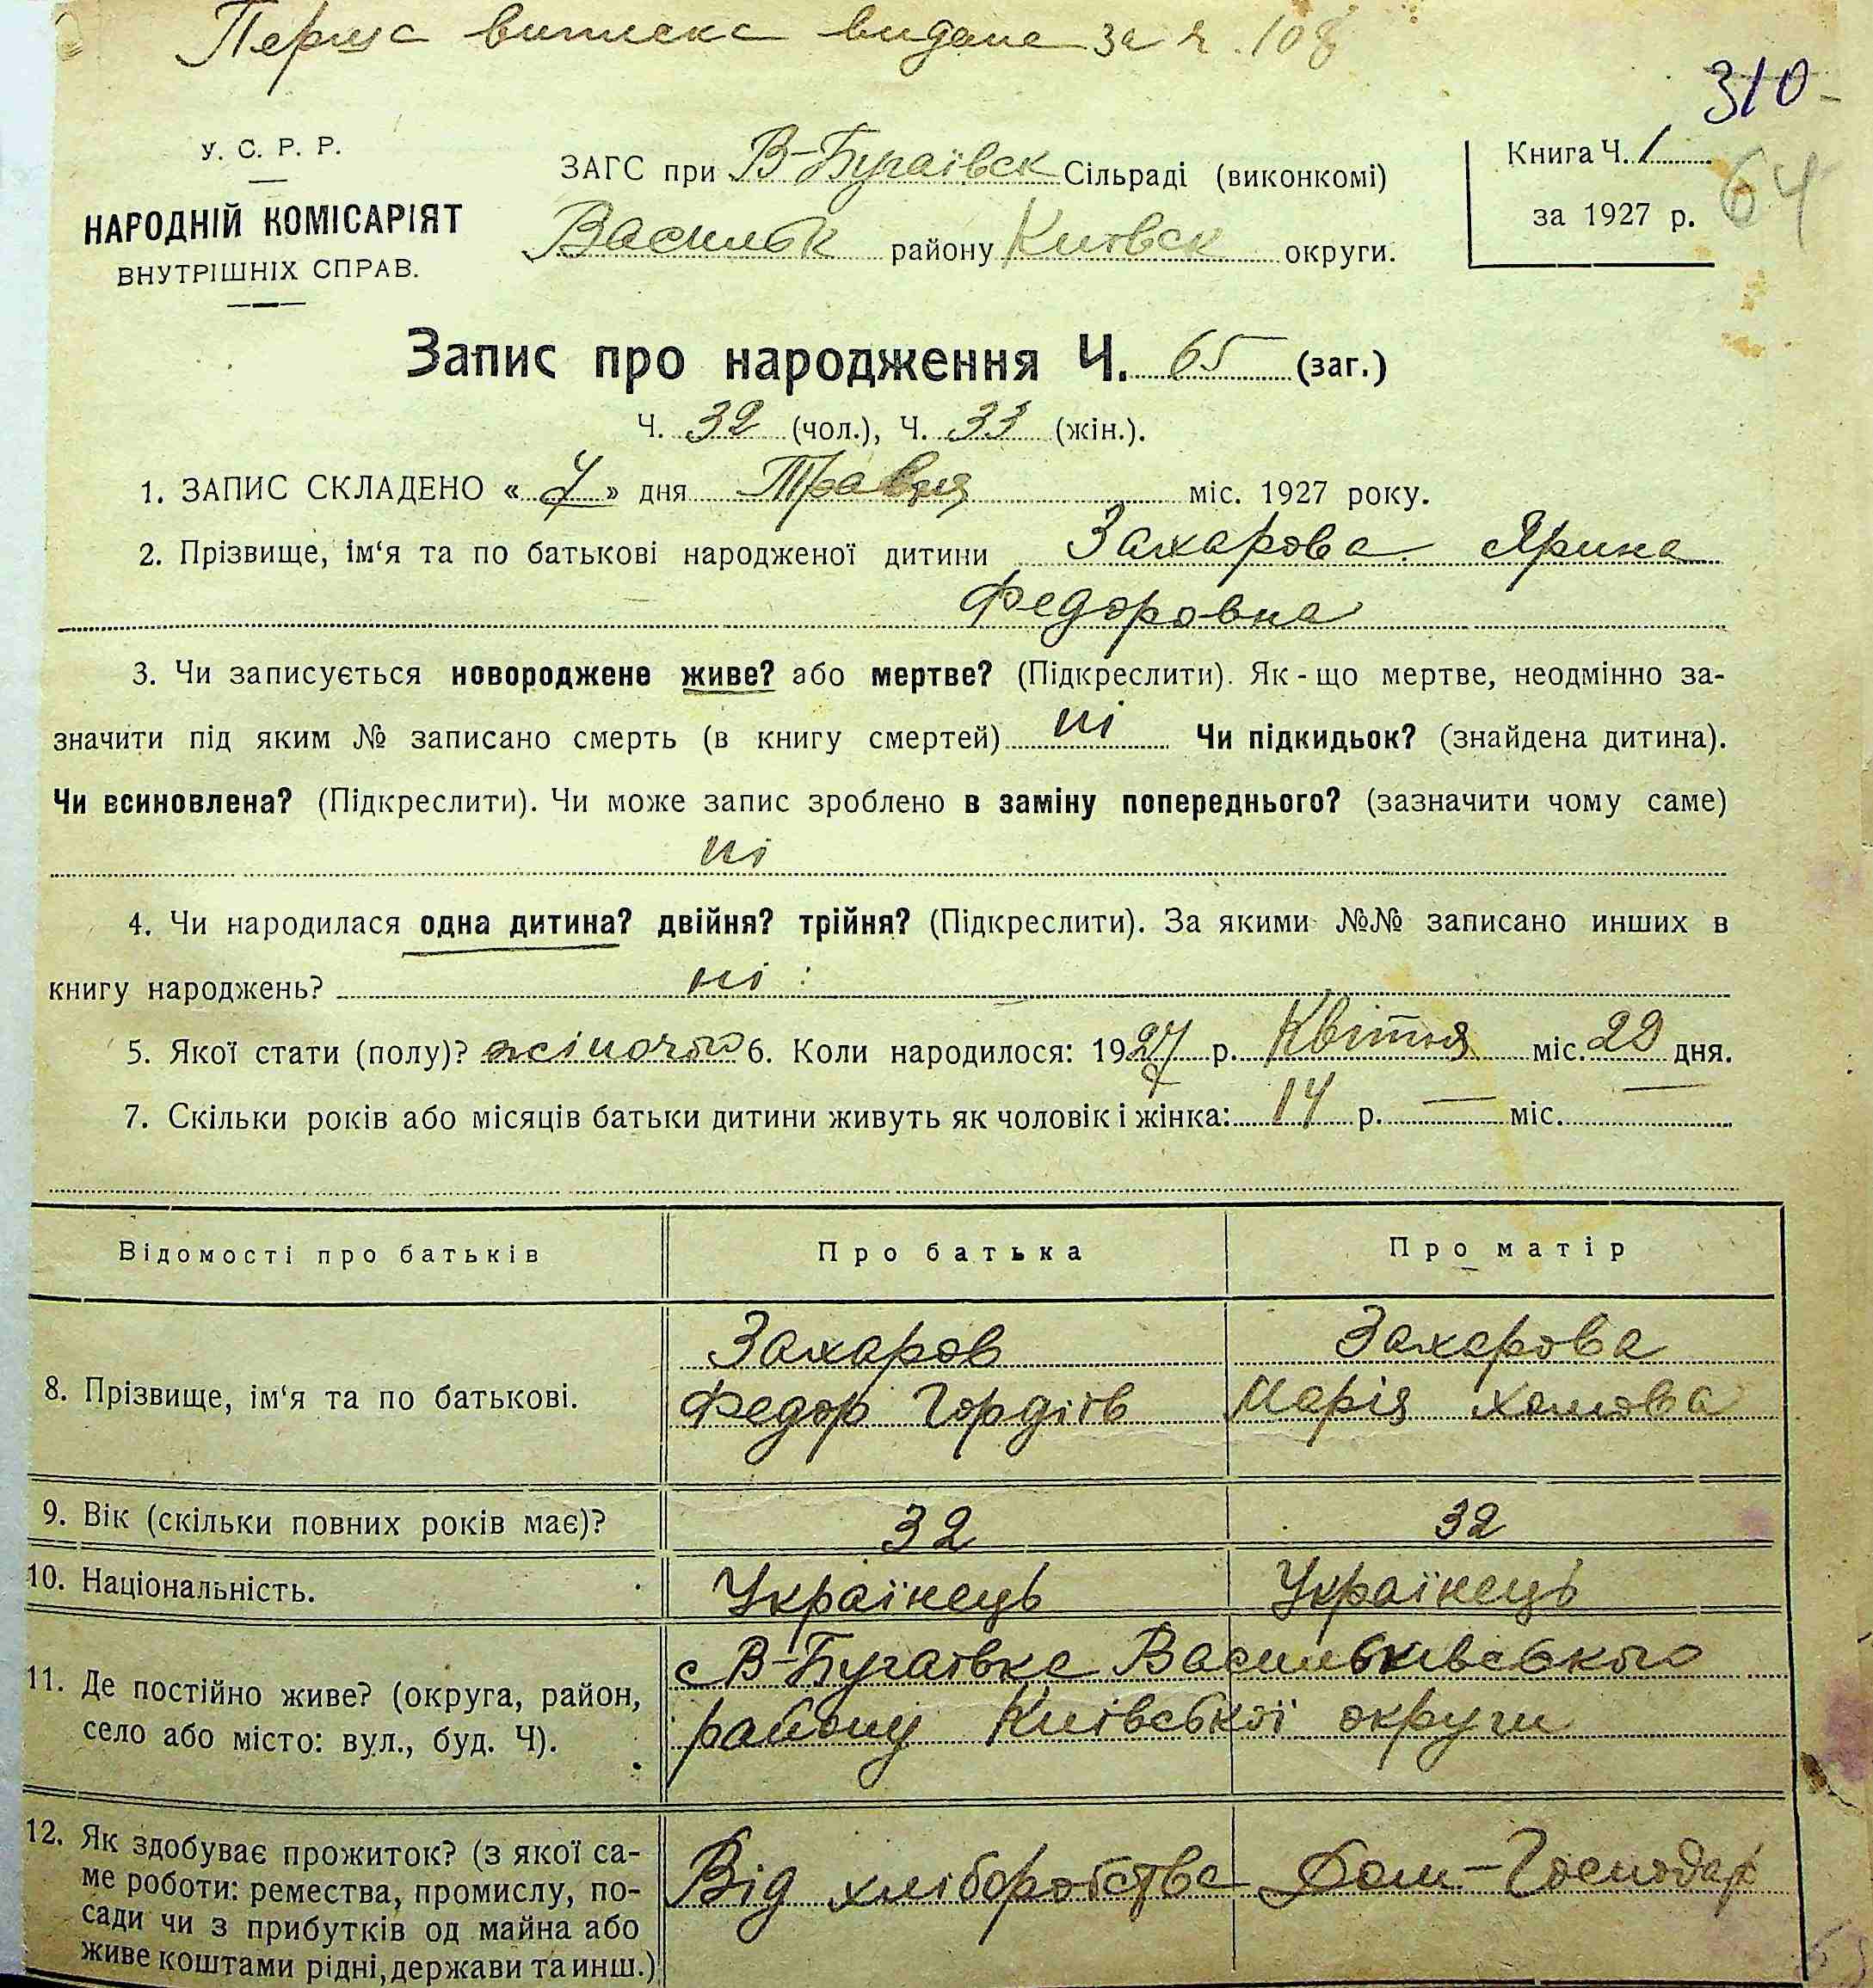 Перша виписка видана за № 108
310
У. С. Р. Р.
НАРОДНІЙ КОМІСАРІЯТ
ВНУТРІШНІХ СПРАВ.
ЗАГС при В-Бугаївск Сільраді (виконкомі)
Васильк району Київск округи.
Книга Ч. 1
за 1927 р.
64
Запис про народження Ч. 65 (заг.)
Ч. 32 (чол.), Ч. 33 (жін.).
1. ЗАПИС СКЛАДЕНО « 7 » дня Травня міс. 1927 року.
2. Прізвище, ім‘я та по батькові народженої дитини Захарова Ярина
Федоровна
3. Чи записується новороджене живе? або мертве? (Підкреслити). Як-що мертве, неодмінно за-
значити під яким № записано смерть (в книгу смертей) ні Чи підкидьок? (знайдена дитина).
Чи всиновлена? (Підкреслити). Чи може запис зроблено в заміну попереднього? (зазначити чому саме)
ні
4. Чи народилася одна дитина? двійня? трійня? (Підкреслити). За якими №№ записано инших в
книгу народжень? ні
5. Якої стати (полу)? жіночої 6. Коли народилося: 1927 р. Квітня міс. 29 дня.
7. Скільки років або місяців батьки дитини живуть як чоловік і жінка: 14 р. — міс.
Відомості про батьків Про батька Про матір
8. Прізвище, ім‘я та по батькові.
Захаров Захарова
Федор Гордіїв Марія Хомова
9. Вік (скільки повних років має)? 32 32
10. Національність. Українець Українець
11. Де постійно живе? (округа, район,
село або місто: вул., буд. Ч).
с В-Бугаївка Васильківського
району Київської округи
12. Як здобуває прожиток? (з якої са-
ме роботи: ремества, промислу, по-
сади чи з прибутків од майна або
живе коштами рідні, держави та инш.)
Від хліборобства Дом-Господар